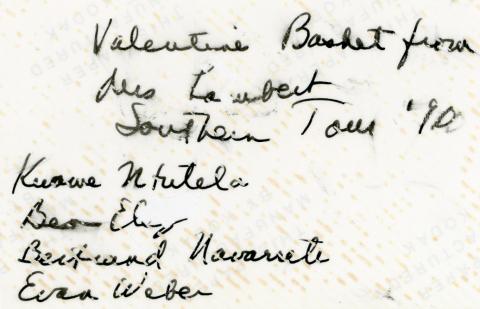 Valentine Basket from
Mrs Lambert
Southern Tour '90
Kwame Ntutela
Ben
Bertrand Navarrete
Evan Weber